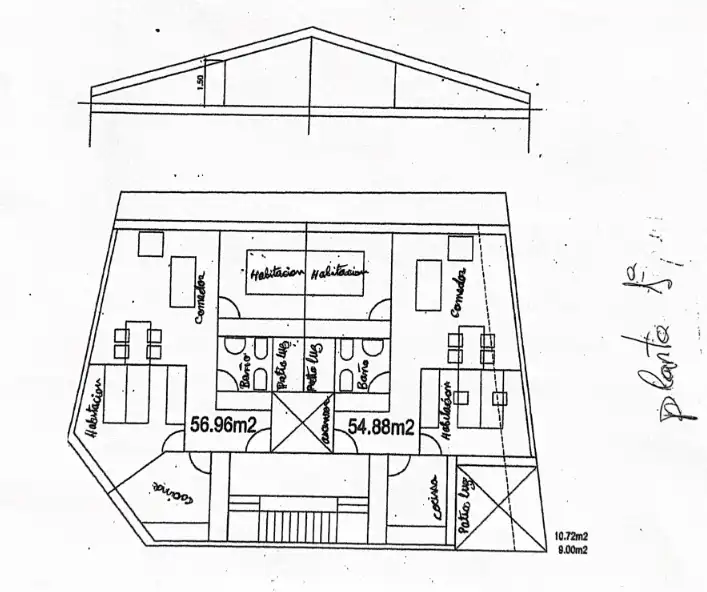 1.50
Habitacion Habitacion
Comedor
Comedor
Baño
Patio luz
Patio luz
Baño
Habitacion
Habitacion
56.96m2
54.88m2
ascensor
Cocina
cocina
Patio luz
10.72m2
9.00m2
planta 1ª